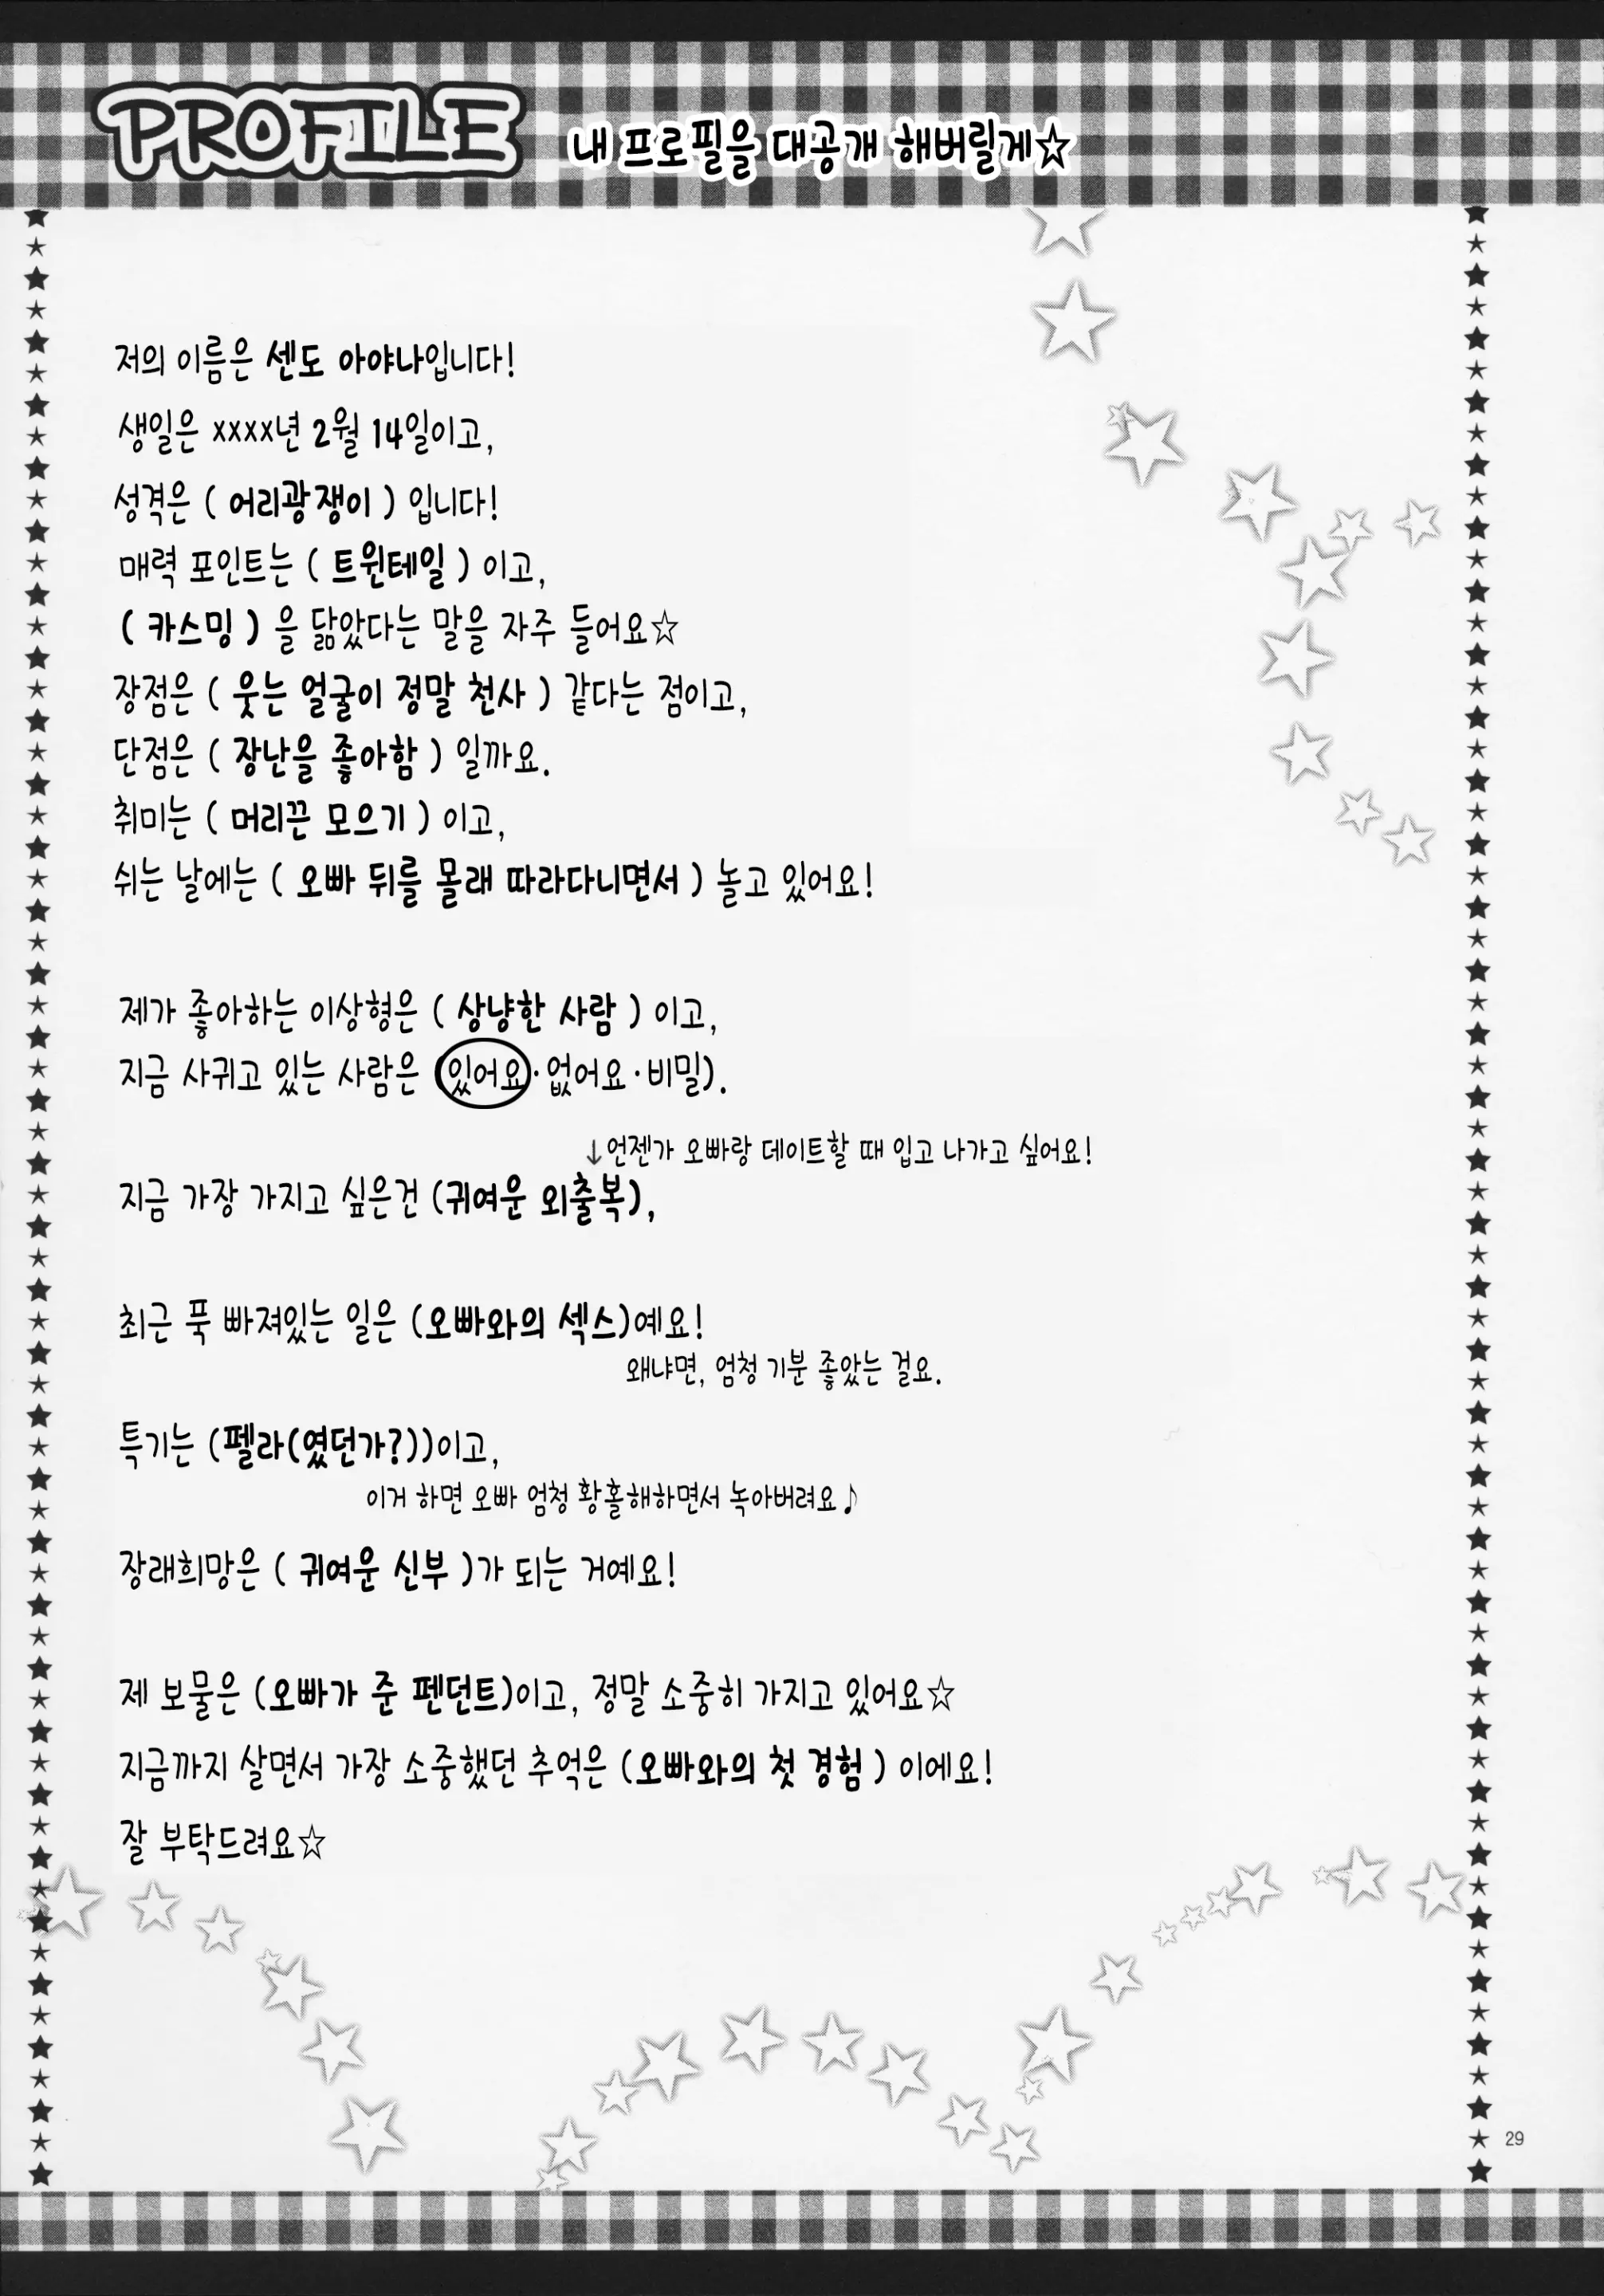 PROFILE 내 프로필을 대공개 해버릴게☆
저의 이름은 센도 아야나입니다!
생일은 xxxx년 2월 14일이고,
성격은 ( 어리광쟁이 ) 입니다!
매력 포인트는 ( 트윈테일 ) 이고,
( 카스밍 ) 을 닮았다는 말을 자주 들어요☆
장점은 ( 웃는 얼굴이 정말 천사 ) 같다는 점이고,
단점은 ( 장난을 좋아함 ) 일까요.
취미는 ( 머리끈 모으기 ) 이고,
쉬는 날에는 ( 오빠 뒤를 몰래 따라다니면서 ) 놀고 있어요!
제가 좋아하는 이상형은 ( 상냥한 사람 ) 이고,
지금 사귀고 있는 사람은 (있어요·없어요·비밀).
↓언젠가 오빠랑 데이트할 때 입고 나가고 싶어요!
지금 가장 가지고 싶은건 (귀여운 외출복),
최근 푹 빠져있는 일은 (오빠와의 섹스)예요!
왜냐면, 엄청 기분 좋았는 걸요.
특기는 (펠라(였던가?))이고,
이거 하면 오빠 엄청 황홀해하면서 녹아버려요♪
장래희망은 ( 귀여운 신부 )가 되는 거예요!
제 보물은 (오빠가 준 펜던트)이고, 정말 소중히 가지고 있어요☆
지금까지 살면서 가장 소중했던 추억은 (오빠와의 첫 경험 ) 이에요!
잘 부탁드려요☆
29